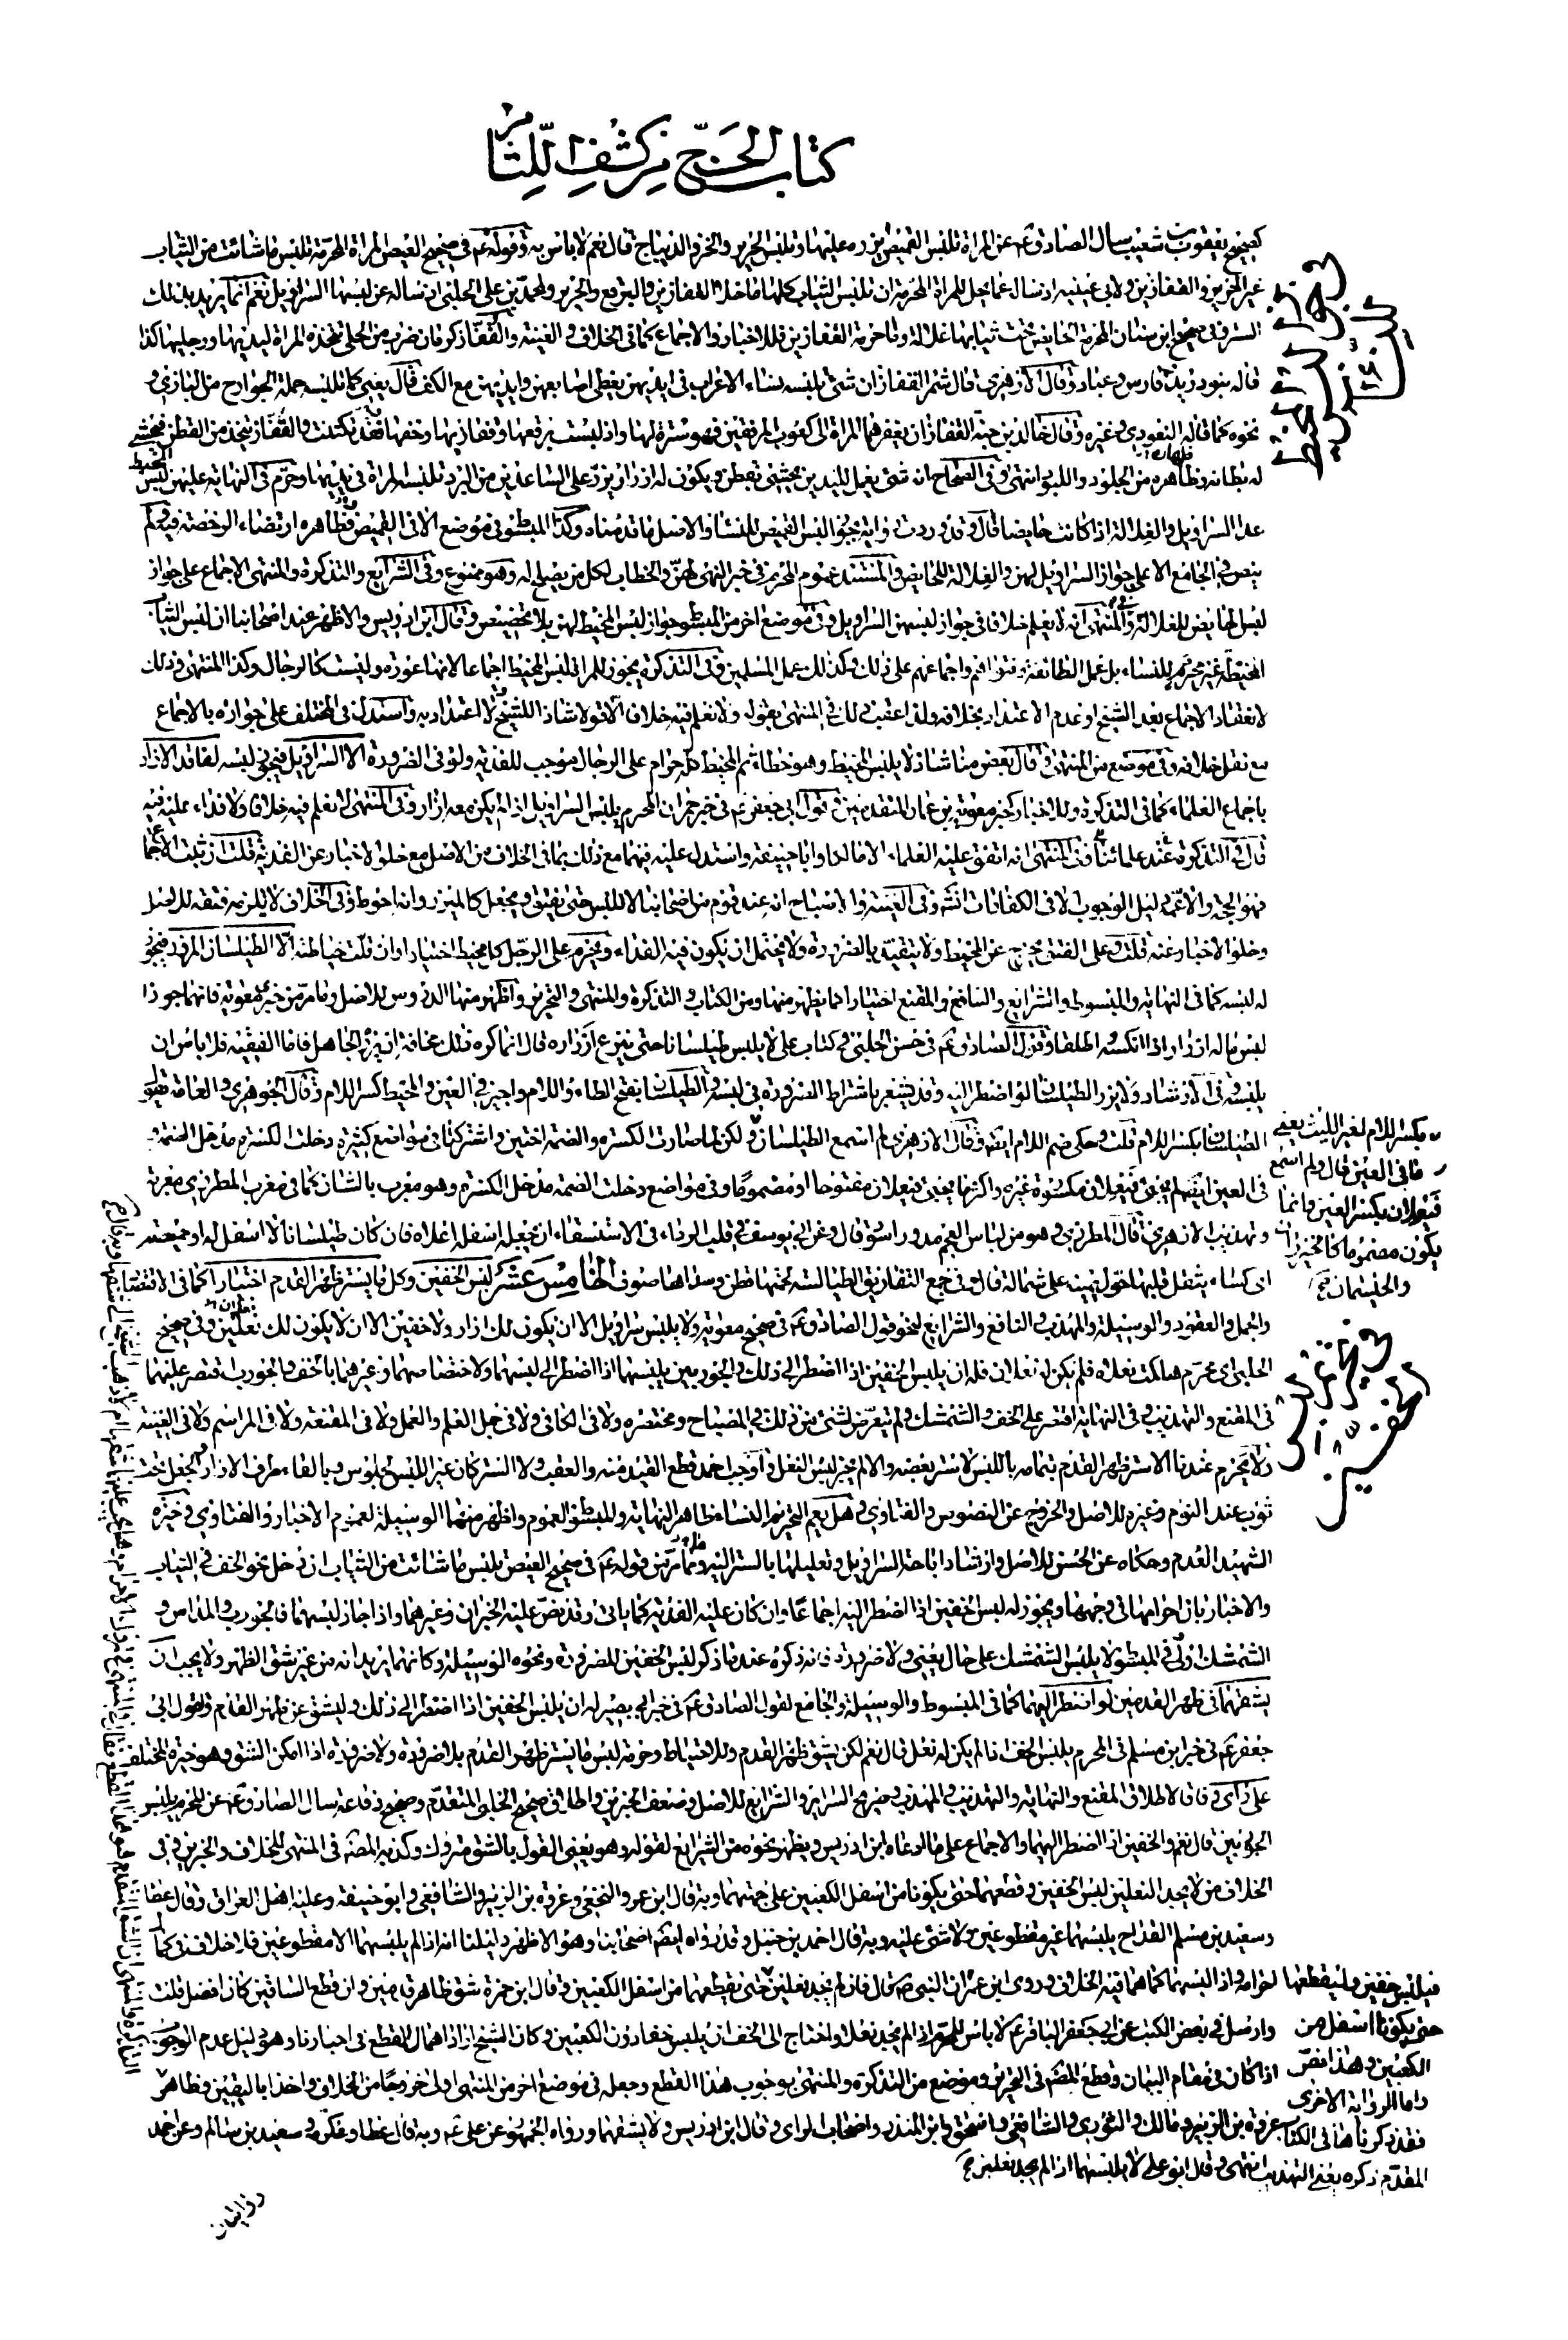 كتاب الحج من كشف اللثام
كصحيح يعقوب بن شعيب سأل الصادق ع عن المرأة تلبس القميص يزره عليها وتلبس الحرير والخز والديباج قال نعم لا بأس به وقوله ع في صحيح العيص المرأة المحرمة تلبس ما شاءت من الثياب
غير الحرير والقفازين ولابي عيينة اذ سأله عما يحل للمرأة المحرمة ان تلبس الثياب كلها ما خلا القفازين والبرقع والحرير ولمحمد بن علي الحلبي اذ سأله عن لبسها السراويل نعم انما يريد بذلك
الستر وفي صحيح ابن سنان المحرمة الحايض تحت ثيابها غلالة واما حرمة القفازين فللاخبار والاجماع كما في الخلاف والغنية والقفاز كرمان ضرب من الحلي تتخذه المرأة ليديها ورجليها كذا
قاله بنو دريد وفارس وعباد وقال الازهري قال شمر القفازان شئ يلبسه نساء الاعراب في ايديهن يغطي اصابعهن وايديهن مع الكف قال يعني كما تلبسه حملة الجوارح من البازي و
نحوه كما قاله الغوري وغيره وقال خالد بن جنبة القفازان تقفزهما المرأة الى كعوب المرفقين فهو سترة لها واذا لبست برقعها وقفازيها وخفها فقد تكتنت والقفاز يتخذ من القطن فيحشى
له بطانة وظاهره من الجلود واللبود انتهى وفي الصحاح انه شئ يعمل لليدين يحشى بقطن ويكون له ازرار يزر على الساعدين من البرد تلبسه المرأة في يديها وحرم في النهاية عليهن لبس المخيط
عدا السراويل والغلالة اذا كانت حايضا قال وقد وردت رواية بجواز لبس القميص للنساء والاصل ما قدمناه وكذا المبسوط في موضع الا في القميص فظاهره ارتضاء الرخصة فيه ولم
ينص في الجامع الا على جواز السراويل لهن والغلالة للحايض والمستند عموم المحرم في خبر النهي لهن والخطاب لكل من يصلح له وهو ممنوع وفي الشرايع والتذكرة والمنتهى الاجماع على جواز
لبس الحايض للغلالة وفي المنتهى انه لا يعلم خلافا في جواز لبسهن السراويل وفي موضع اخر من المبسوط جواز لبس المخيط لهن بلا تخصيص وقال ابن ادريس والاظهر عند اصحابنا ان لبس الثياب
المخيطة غير محرم للنساء بل عمل الطائفة وفتواهم واجماعهم على ذلك وكذلك عمل المسلمين وفي التذكرة يجوز للمرأة لبس المخيط اجماعا لانها عورة وليست كالرجال وكذا المنتهى وذلك
لانعقاد الاجماع بعد الشيخ او عدم الاعتداد بخلافه ولذا عقب ذلك في المنتهى بقوله ولا نعلم فيه خلافا الا قولا شاذا للشيخ لا اعتداد به واستدل في المختلف على جوازه بالاجماع
مع نقل خلافه وفي موضع من المنتهى وقال بعض منا شاذ لا يلبس المخيط وهو خطاء ثم المخيط كله حرام على الرجال موجب للفدية ولو في الضرورة الا السراويل فيجوز لبسه لفاقد الازار
باجماع العلماء كما في التذكرة وللاخبار كخبر معوية بن عمار المتقدمين وقول ابي جعفر ع في خبر حمران المحرم يلبس السراويل اذا لم يكن معه ازار وفي المنتهى لا نعلم فيه خلافا ولا فداء عليه فيه
قال في التذكرة عند علمائنا وفي المنتهى انه اتفق عليه العلماء الا مالكا وابا حنيفة واستدل عليه فيهما مع ذلك بما في الخلاف من الاصل مع خلو الاخبار عن الفدية قلت ان ثبت الاجماع
فهو الحجة والا عم دليل الوجوب الا في الكفارات انشه وفي الغنية والاصباح انه عند قوم من اصحابنا لا يلبس حتى يفتق ويجعل كالميزر وانه احوط وفي الخلاف لا يلزمه فتقه للاصل
وخلو الاخبار عنه قلت وعلى الفتق يخرج عن المخيط ولا يتقيد بالضرورة ولا يحتمل ان يكون فيه الفداء ويحرم على الرجل كل مخيط اختيارا وان قلت خياطته الا الطيلسان المزرر فيجوز
له لبسه كما في النهاية والمبسوط والشرايع والنافع والمقنع اختيارا كما يظهر منها ومن الكتاب والتذكرة والمنتهى والتحرير واظهر منها الدروس للاصل وما مر من خبر معوية فانهما جوزا
لبس ما له ازرار اذا انكسه واطلقا وقول الصادق ع في حسن الحلبي في كتاب علي لا يلبس طيلسانا حتى ينزع ازراره قال انما كره ذلك مخافة ان يزره الجاهل فاما الفقيه فلا بأس ان
يلبسه وفي الارشاد ولا يزر الطيلسان لو اضطر اليه وقد يشعر باشتراط الضرورة في لبسه والطيلسان بفتح الطاء واللام واجيز في العين والمحيط كسر اللام وقال الجوهري والعامة تقول
الطيلسان بكسر اللام قلت وحكى ضم اللام ايضا وقال الازهري لم اسمع الطيلسان ولكن لما صارت الكسرة والضمة اختين واشتركتا في مواضع كثيرة دخلت الكسرة مدخل الضمة و
في العين انه لم يجئ فيعلان مكسورة غيره واكثر ما يجئ فيعلان مفتوحا او مضموما وفي مواضع دخلت الضمة مدخل الكسرة وهو معرب بالشان كما في مغرب المطرزي معربة
وتهذيب الازهري قال المطرزي وهو من لباس العجم مدور اسود قال وعن ابي يوسف في قلب الرداء في الاستسقاء ان يجعل اسفله اعلاه فان كان طيلسانا لا اسفل له او خميصة
اي كساء يثقل قلبها حول يمينه على شماله قال وفي جمع التفاريق الطيالسة لحمتها قطن وسداها صوف الخامس عشر لبس الخفين وكل ما يستر ظهر القدم اختيارا كما في الاقتصاد
والجمل والعقود والوسيلة والمهذب والنافع والشرايع لنحو قول الصادق ع في صحيح معوية ولا يلبس سراويل الا ان يكون لك ازار ولا خفين الا ان لا يكون لك نعلين وفي صحيح
الحلبي اي محرم هلكت نعلاه فلم يكن له نعلان فله ان يلبس الخفين اذا اضطر الى ذلك والجوربين يلبسهما اذا اضطر الى لبسهما ولاختصاصهما وغيرهما بالخف والجورب اقتصر عليهما
في المقنع والتهذيب وفي النهاية اقتصر على الخف والشمشك ولم يتعرض لشئ من ذلك في المصباح ومختصره ولا في الكافي ولا في جمل العلم والعمل ولا في المقنعة ولا في المراسم ولا في الغنية
ولا يحرم عندنا الا ستر ظهر القدم بتمامه باللبس لا ستر بعضه والا لم يجز لبس النعل واوجب احمد قطع القيد منه والعقب ولا الستر كان بغير اللبس كجلوس والقاء طرف الازار والجعل تحت
ثوب عند النوم وغيره للاصل والخروج عن النصوص والفتاوي وهل يعم التحريم النساء ظاهر النهاية والمبسوط العموم واظهر منهما الوسيلة لعموم الاخبار والفتاوي وخيرة
الشهيد العدم وحكاه عن الحسن للاصل وارشاد اباحة السراويل وتعليلها بالستر اليه وما مر من قوله ع في صحيح العيص تلبس ما شاءت من الثياب ان دخل نحو الخف في الثياب
والاخبار بان احرامها في وجهها ويجوز له لبس الخفين اذا اضطر اليه اجماعا وان كان عليه الفدية كما ياتي وقد نص عليه الخبران وغيرهما واذا جاز لبسهما فالجورب والمداس و
الشمشك اولى وفي المبسوط لا يلبس الشمشك على حال يعني ولا ضرورة ذكره عند ما ذكر لبس الخفين للضرورة ونحوه الوسيلة وكانهما يريدانه من غير شق الظهر ولا يجب ان
يشقهما في ظهر القدمين لو اضطر اليهما كما في المبسوط والوسيلة والجامع لقول الصادق ع في خبر ابي بصير له ان يلبس الخفين اذا اضطر الى ذلك وليشق عن ظهر القدم وقول ابي
جعفر ع في خبر ابن مسلم في المحرم يلبس الخف اذا لم يكن له نعل قال نعم لكن يشق ظهر القدم وللاحتياط وحرمة لبس ما يستر ظهر القدم بلا ضرورة ولا ضرورة اذا امكن الشق وهو خيرة المختلف
على رأي وفاقا لاطلاق المقنع والنهاية والتهذيب والمهذب وصريح السراير والشرايع للاصل وضعف الخبرين واطلاق صحيح الحلبي المتقدم وصحيح رفاعة سأل الصادق ع عن المحرم يلبس
الجوربين قال نعم والخفين اذا اضطر اليهما والاجماع على ما ادعاه ابن ادريس ويظهر نحوه من الشرايع لقوله وهو يعني القول بالشق متروك وكذبه المصنف في المنتهى للخلاف والخبرين وفي
الخلاف من لا يجد النعلين لبس الخفين وقطعهما حتى يكونا من اسفل الكعبين على جهتهما وبه قال ابن عمر والنخعي وعروة بن الزبير والشافعي وابو حنيفة وعليه اهل العراق وقال عطا
وسعيد بن مسلم القداح يلبسهما غير مقطوعين ولا شئ عليه وبه قال احمد بن حنبل وقد رواه ايضا اصحابنا وهو الاظهر دليلنا انه اذا لم يلبسهما الا مقطوعين فلا خلاف في كمال
احرامه واذا لبسهما كما هما فيه الخلاف وروى ابن عمر ان النبي ص قال فان لم يجد نعلين حتى يقطعهما من اسفل الكعبين وقال ابن حمزة شق ظاهر قدمين وان قطع الساقين كان افضل قلت
وارسل في بعض الكتب عن ابي جعفر الباقر ع لا بأس للمحرم اذا لم يجد نعلا واحتاج الى الخف ان يلبس خفا دون الكعبين وكان الشيخ اراد اهمال القطع في اخبارنا وهو دليل عدم الوجوب
اذا كان في مقام البيان وقطع المصنف في التحرير وموضع من التذكرة والمنتهى بوجوب هذا القطع وجعله في موضع اخر من المنتهى اولى خروجا من الخلاف واخذا باليقين وظاهر
عروة بن الزبير ومالك والثوري والشافعي واسحق وابن المنذر واصحاب الرأي وقال ابن ادريس ولا يشقهما ورواه الجمهور عن علي ع وبه قال عطا وعكرمة وسعيد بن سالم وعن احمد
روايتان
بكسر اللام لغير الليث يعني
ما في العين قال ولم اسمع
فيعلان بكسر العين وانما
يكون مضموما كالخيزران
والحيسمان
فيلبس خفين وليقطعهما
حتى يكونا اسفل من
الكعبين وهذا نص
واما الرواية الاخرى
فقد ذكرناها في الكتاب
المقدم ذكره يعني التهذيب انتهى وقال ابو علي لا يلبسهما اذا لم يجد نعلين